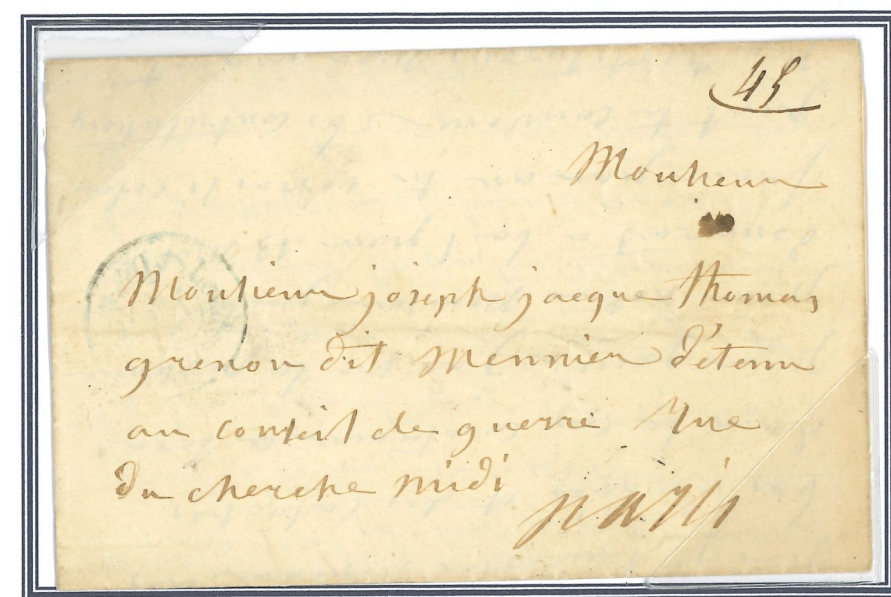 45
Monsieur
Monsieur joseph jacque Thomas
grenon dit Mennier d'étenu
au conseil de guerre rue
du cherche midi
paris